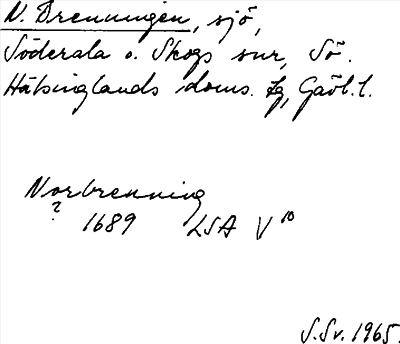 N. Brenningen, sjö,
Söderala o. Skogs snr, Sö.
Hälsinglands doms. tg, Gävl. l.
Norbrenning
?
1689 LSA V 10
S. Sv. 1965.